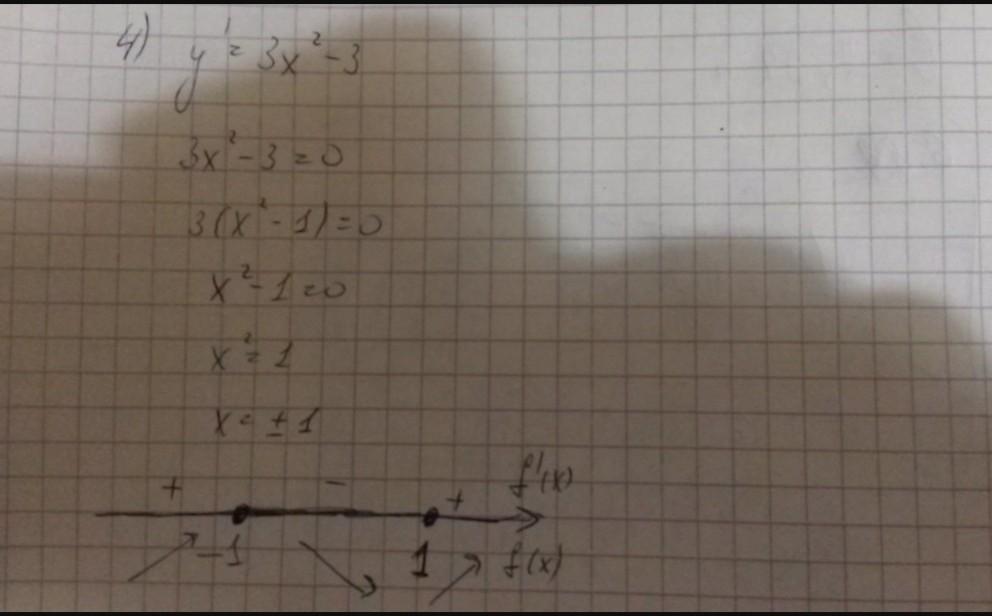 4) y' = 3x² - 3
3x² - 3 = 0
3(x² - 1) = 0
x² - 1 = 0
x² = 1
x = ± 1
+ - + f'(x)
-1 1 f(x)